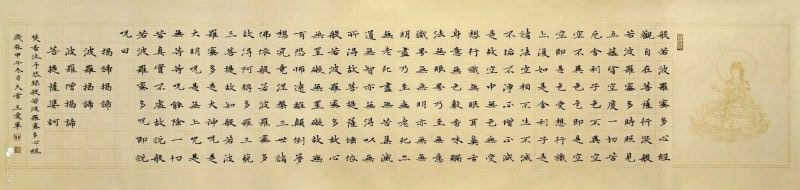 般若波羅蜜多心經
觀自在菩薩行深般
若波羅蜜多時照見
五蘊皆空度一切苦
厄舍利子色不異空
空不異色色即是空
空即是色受想行識
亦復如是舍利子是
諸法空相不生不滅
不垢不淨不增不減
是故空中無色無受
想行識無眼耳鼻舌
身意無色聲香味觸
法無眼界乃至無意
識界無無明亦無無
明盡乃至無老死亦
無老死盡無苦集滅
道無智亦無得以無
所得故菩提薩埵依
般若波羅蜜多故心
無罣礙無罣礙故無
有恐怖遠離顛倒夢
想究竟涅槃三世諸
佛依般若波羅蜜多
故得阿耨多羅三藐
三菩提故知般若波
羅蜜多是大神咒是
大明咒是無上咒是
無等等咒能除一切
苦真實不虛故說般
若波羅蜜多咒即說
咒曰
揭諦揭諦
波羅揭諦
波羅僧揭諦
菩提薩婆訶
焚香沐手恭錄般若波羅蜜多心經
歲在甲午冬月大雪王愛軍